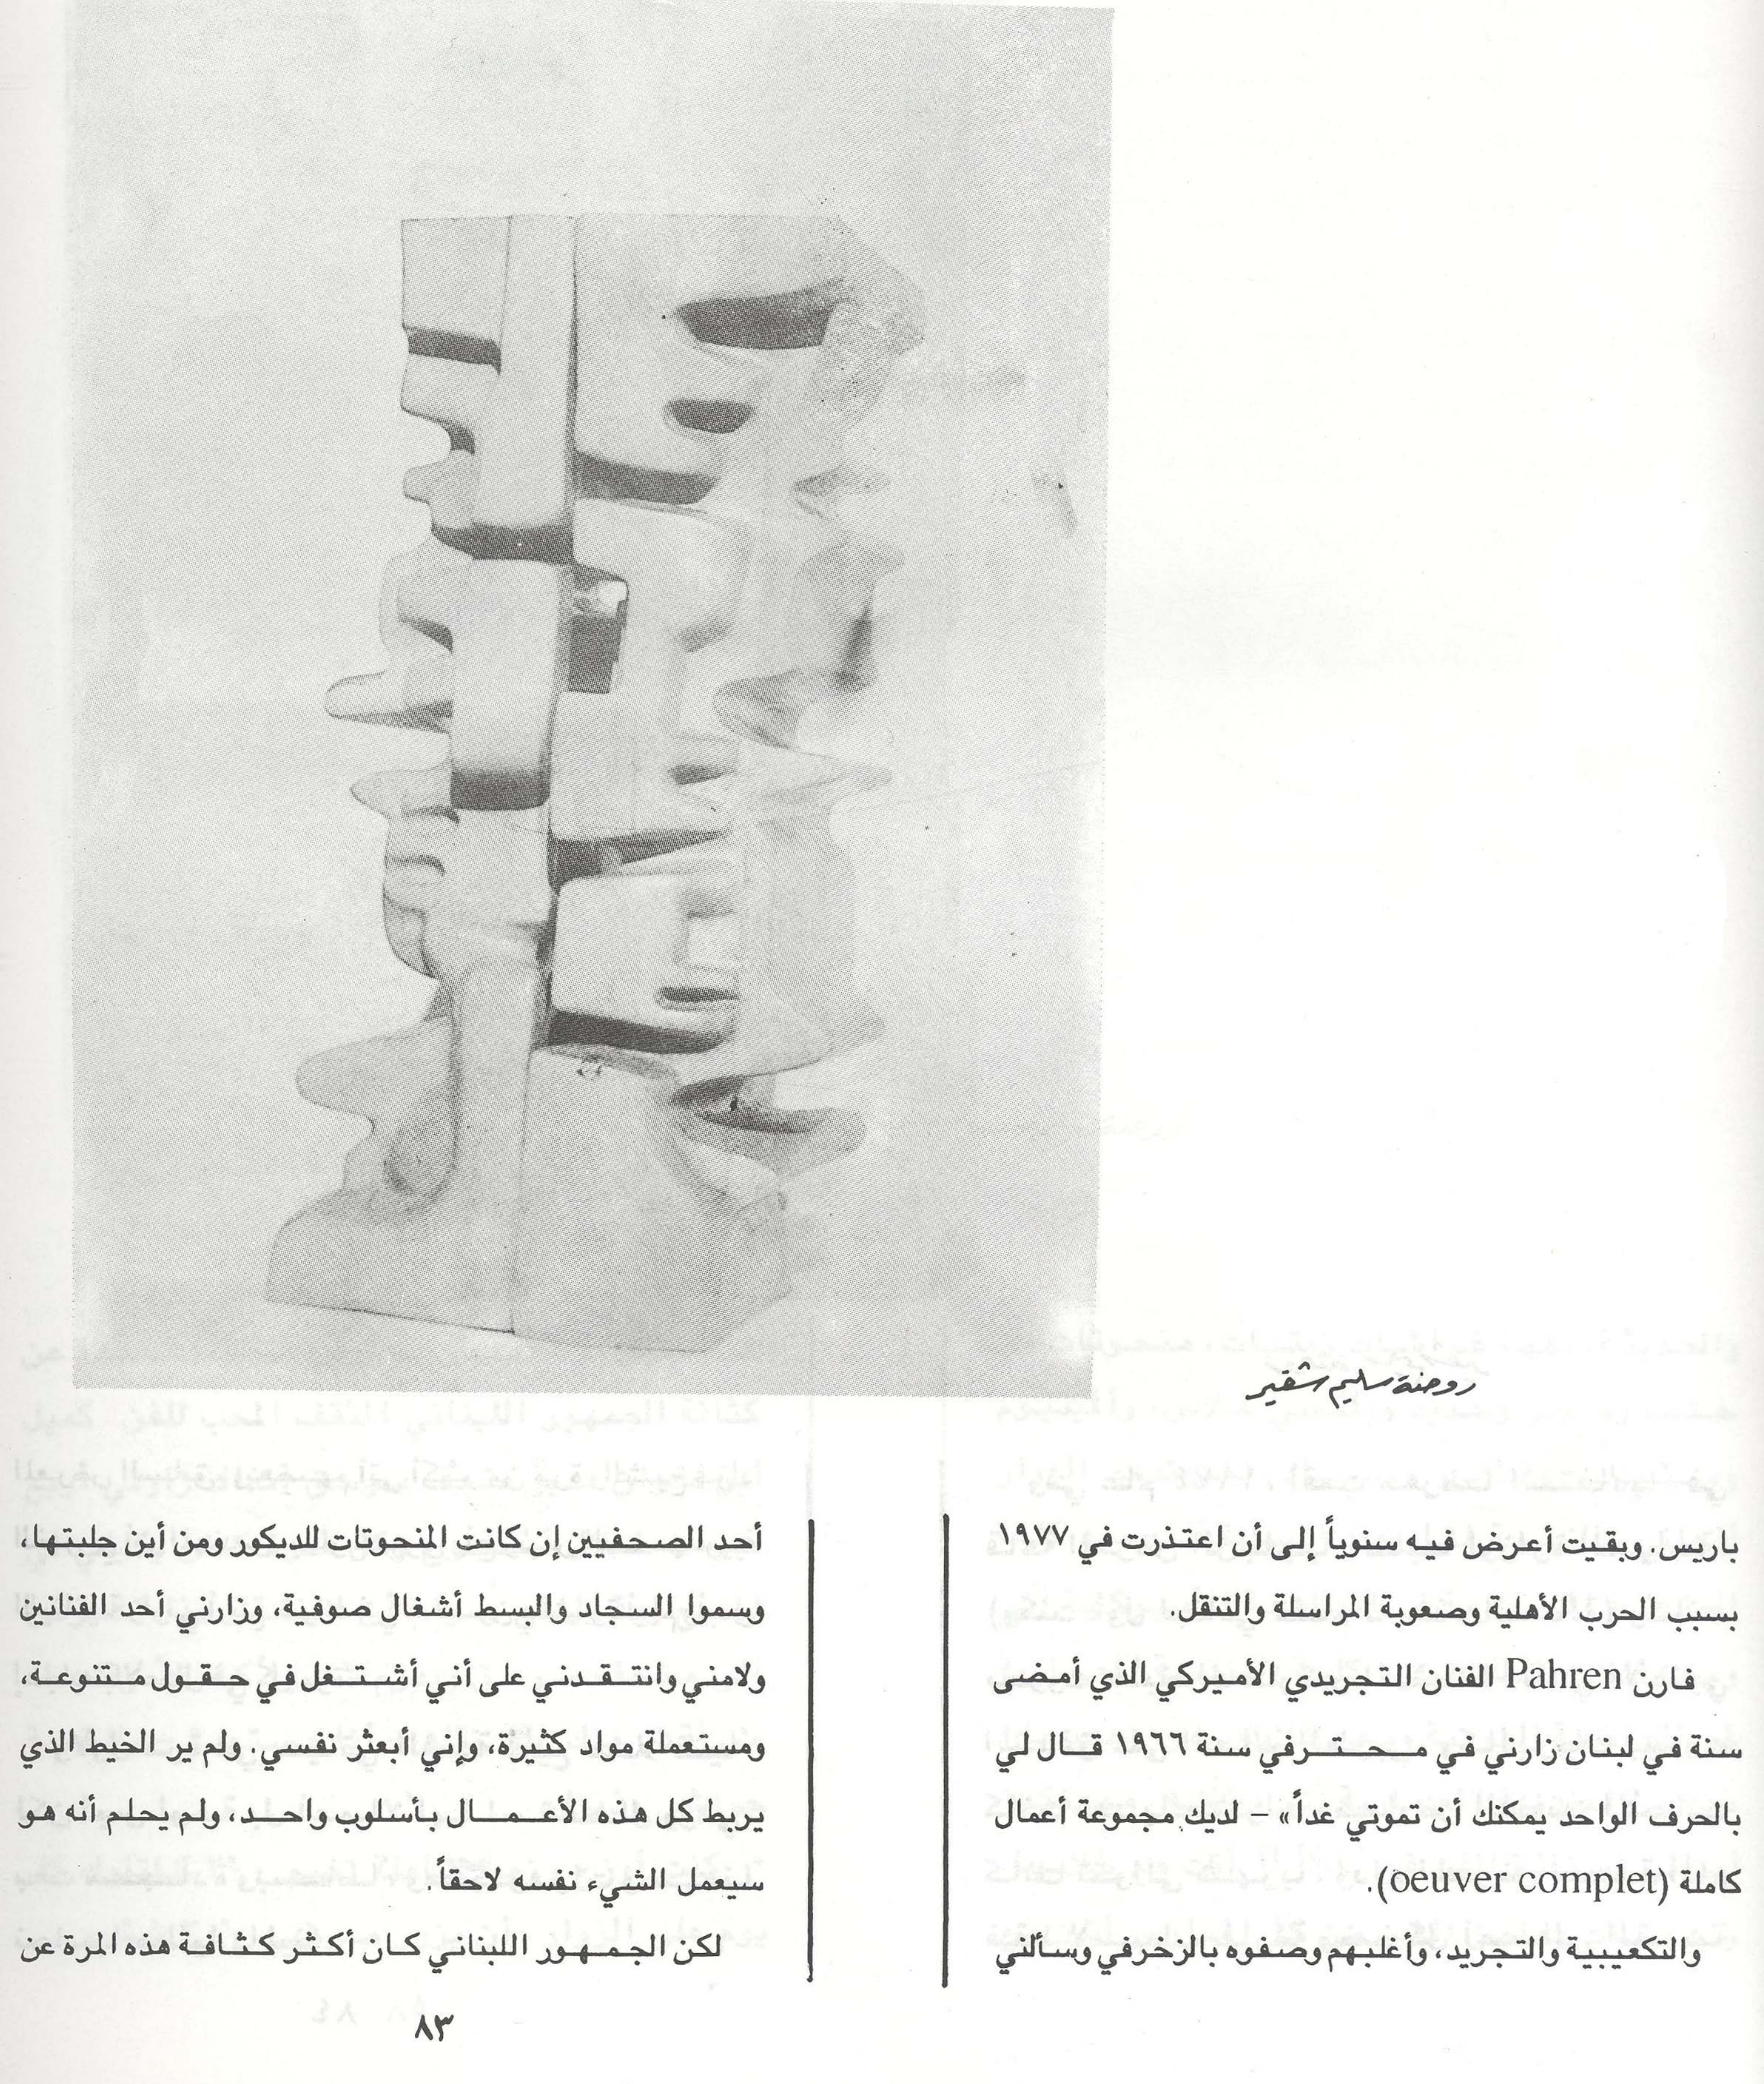 روضة سليم شقير
باريس. وبقيت أعرض فيه سنوياً إلى أن اعتذرت في ١٩٧٧
بسبب الحرب الأهلية وصعوبة المراسلة والتنقل.
فارن Pahren الفنان التجريدي الأميركي الذي أمضى
سنة في لبنان زارني في محترفي سنة ١٩٦٦ قال لي
بالحرف الواحد يمكنك أن تموتي غداً» – لديك مجموعة أعمال
كاملة (oeuver complet).
والتكعيبية والتجريد، وأغلبهم وصفوه بالزخرفي وسألني
أحد الصحفيين إن كانت المنحوتات للديكور ومن أين جلبتها،
وسموا السجاد والبسط أشغال صوفية، وزارني أحد الفنانين
ولامني وانتقدني على أني أشتغل في حقول متنوعة،
ومستعملة مواد كثيرة، وإني أبعثر نفسي. ولم ير الخيط الذي
يربط كل هذه الأعمال بأسلوب واحد، ولم يحلم أنه هو
سيعمل الشيء نفسه لاحقاً.
لكن الجمهور اللبناني كان أكثر كثافة هذه المرة عن
٨٣